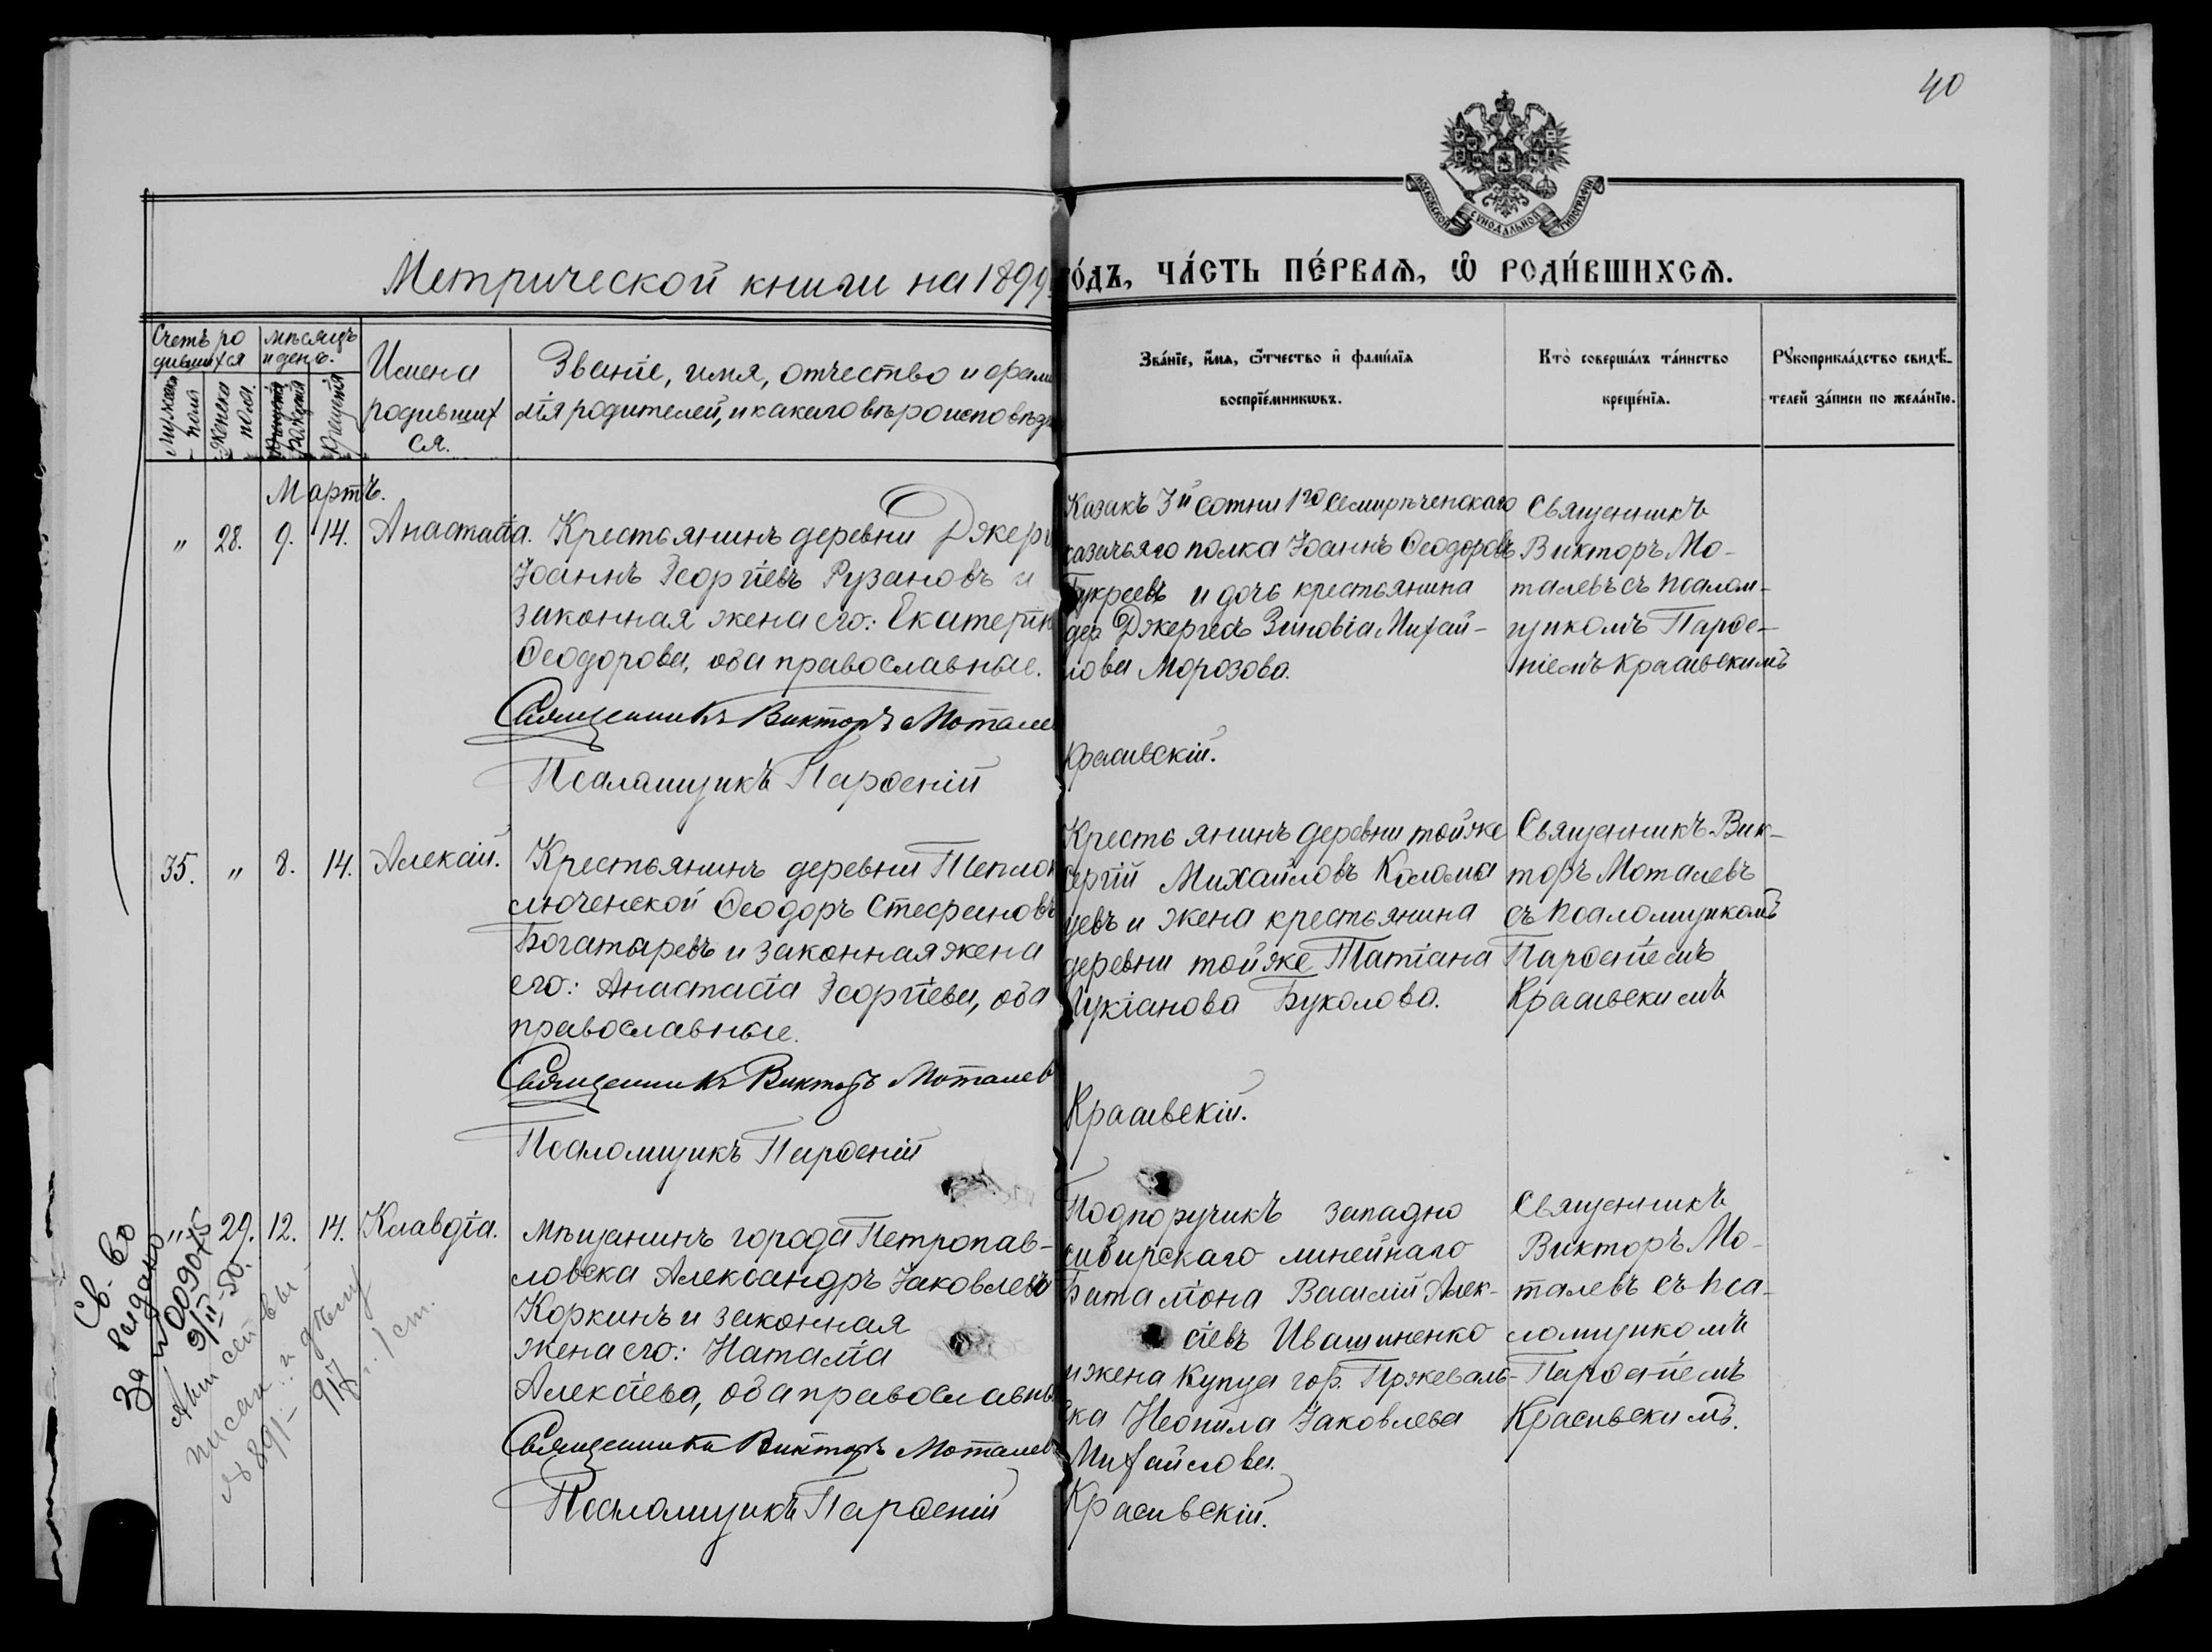 40
МОСКОВСКОЙ СѴНОДАЛЬНОЙ ТИПОГРАФІИ
Метрической книги на 1899
го́дъ, ча́сть пе́рваѧ, ѡ҆ роди́вшихсѧ.
Счетъ ро
дившихся
Мужеска
пола
Женска
пола.
мѣсяцъ
и день.
Рожденія
Крещенія
Имена
родивших
ся.
Званіе, имя, отчество и фами
лія родителей, и какаго вѣроисповѣда
Зва́нїе, и҆́мѧ, ѻ҆́тчество и҆ фами́лїѧ
воспрїе́мникѡвъ.
Кто̀ соверша́лъ та́инство
креще́нїѧ.
Рꙋкоприкла́дство свидѣ́-
телей за́писи по жела́нїю.
Мартъ.
" 28. 9. 14. Анастасія.
Крестьянинъ деревни Джерг
Іоаннъ Георгіевъ Рузановъ и
законная жена его: Екатерин
Ѳеодорова, оба православные.
Священникъ Викторъ Моталев
Псаломщикъ Парѳеній
Казакъ 3й сотни 1го Семирѣченскаго
казачьяго полка Іоаннъ Ѳеодоровъ
Букреевъ и дочь крестьянина
дер Джергесъ Зиновіа Михай-
лова Морозова.
Красивскій.
Священникъ
Викторъ Мо-
талевъ съ псалом-
щикомъ Парѳе-
ніемъ Красивскимъ
35. " 8. 14. Алексій.
Крестьянинъ деревни Теплок
люченской Ѳеодоръ Стефановъ
Богатыревъ и законная жена
его: Анастасіа Георгіева, оба
православные.
Священникъ Викторъ Моталев
Псаломщикъ Парѳеній
Крестьянинъ деревни тойже
Сергій Михайловъ Коломы
цевъ и жена крестьянина
деревни тойже Татіана
Лукіанова Буколова.
Красивскій.
Священникъ Вик-
торъ Моталевъ
съ псаломщикомъ
Парѳеніемъ
Красивскимъ
" 29. 12. 14. Клавдіа.
Мѣщанинъ города Петропав-
ловска Александръ Іаковлевъ
Коркинъ и законная
жена его: Наталіа
Алексіева, оба православны
Священникъ Викторъ Моталевъ
Псаломщикъ Парѳеній
Подпоручикъ западно
сибирскаго линейнаго
Баталіона Василій Алек-
сіевъ Иващиненко
и жена купца гор. Пржеваль-
ска Неонила Іаковлева
Михайлова.
Красивскій.
Священникъ
Викторъ Мо-
талевъ съ пса-
ломщикомъ
Парѳеніемъ
Красивскимъ.
Св-во
выдано
За № 009075
9/III-50.